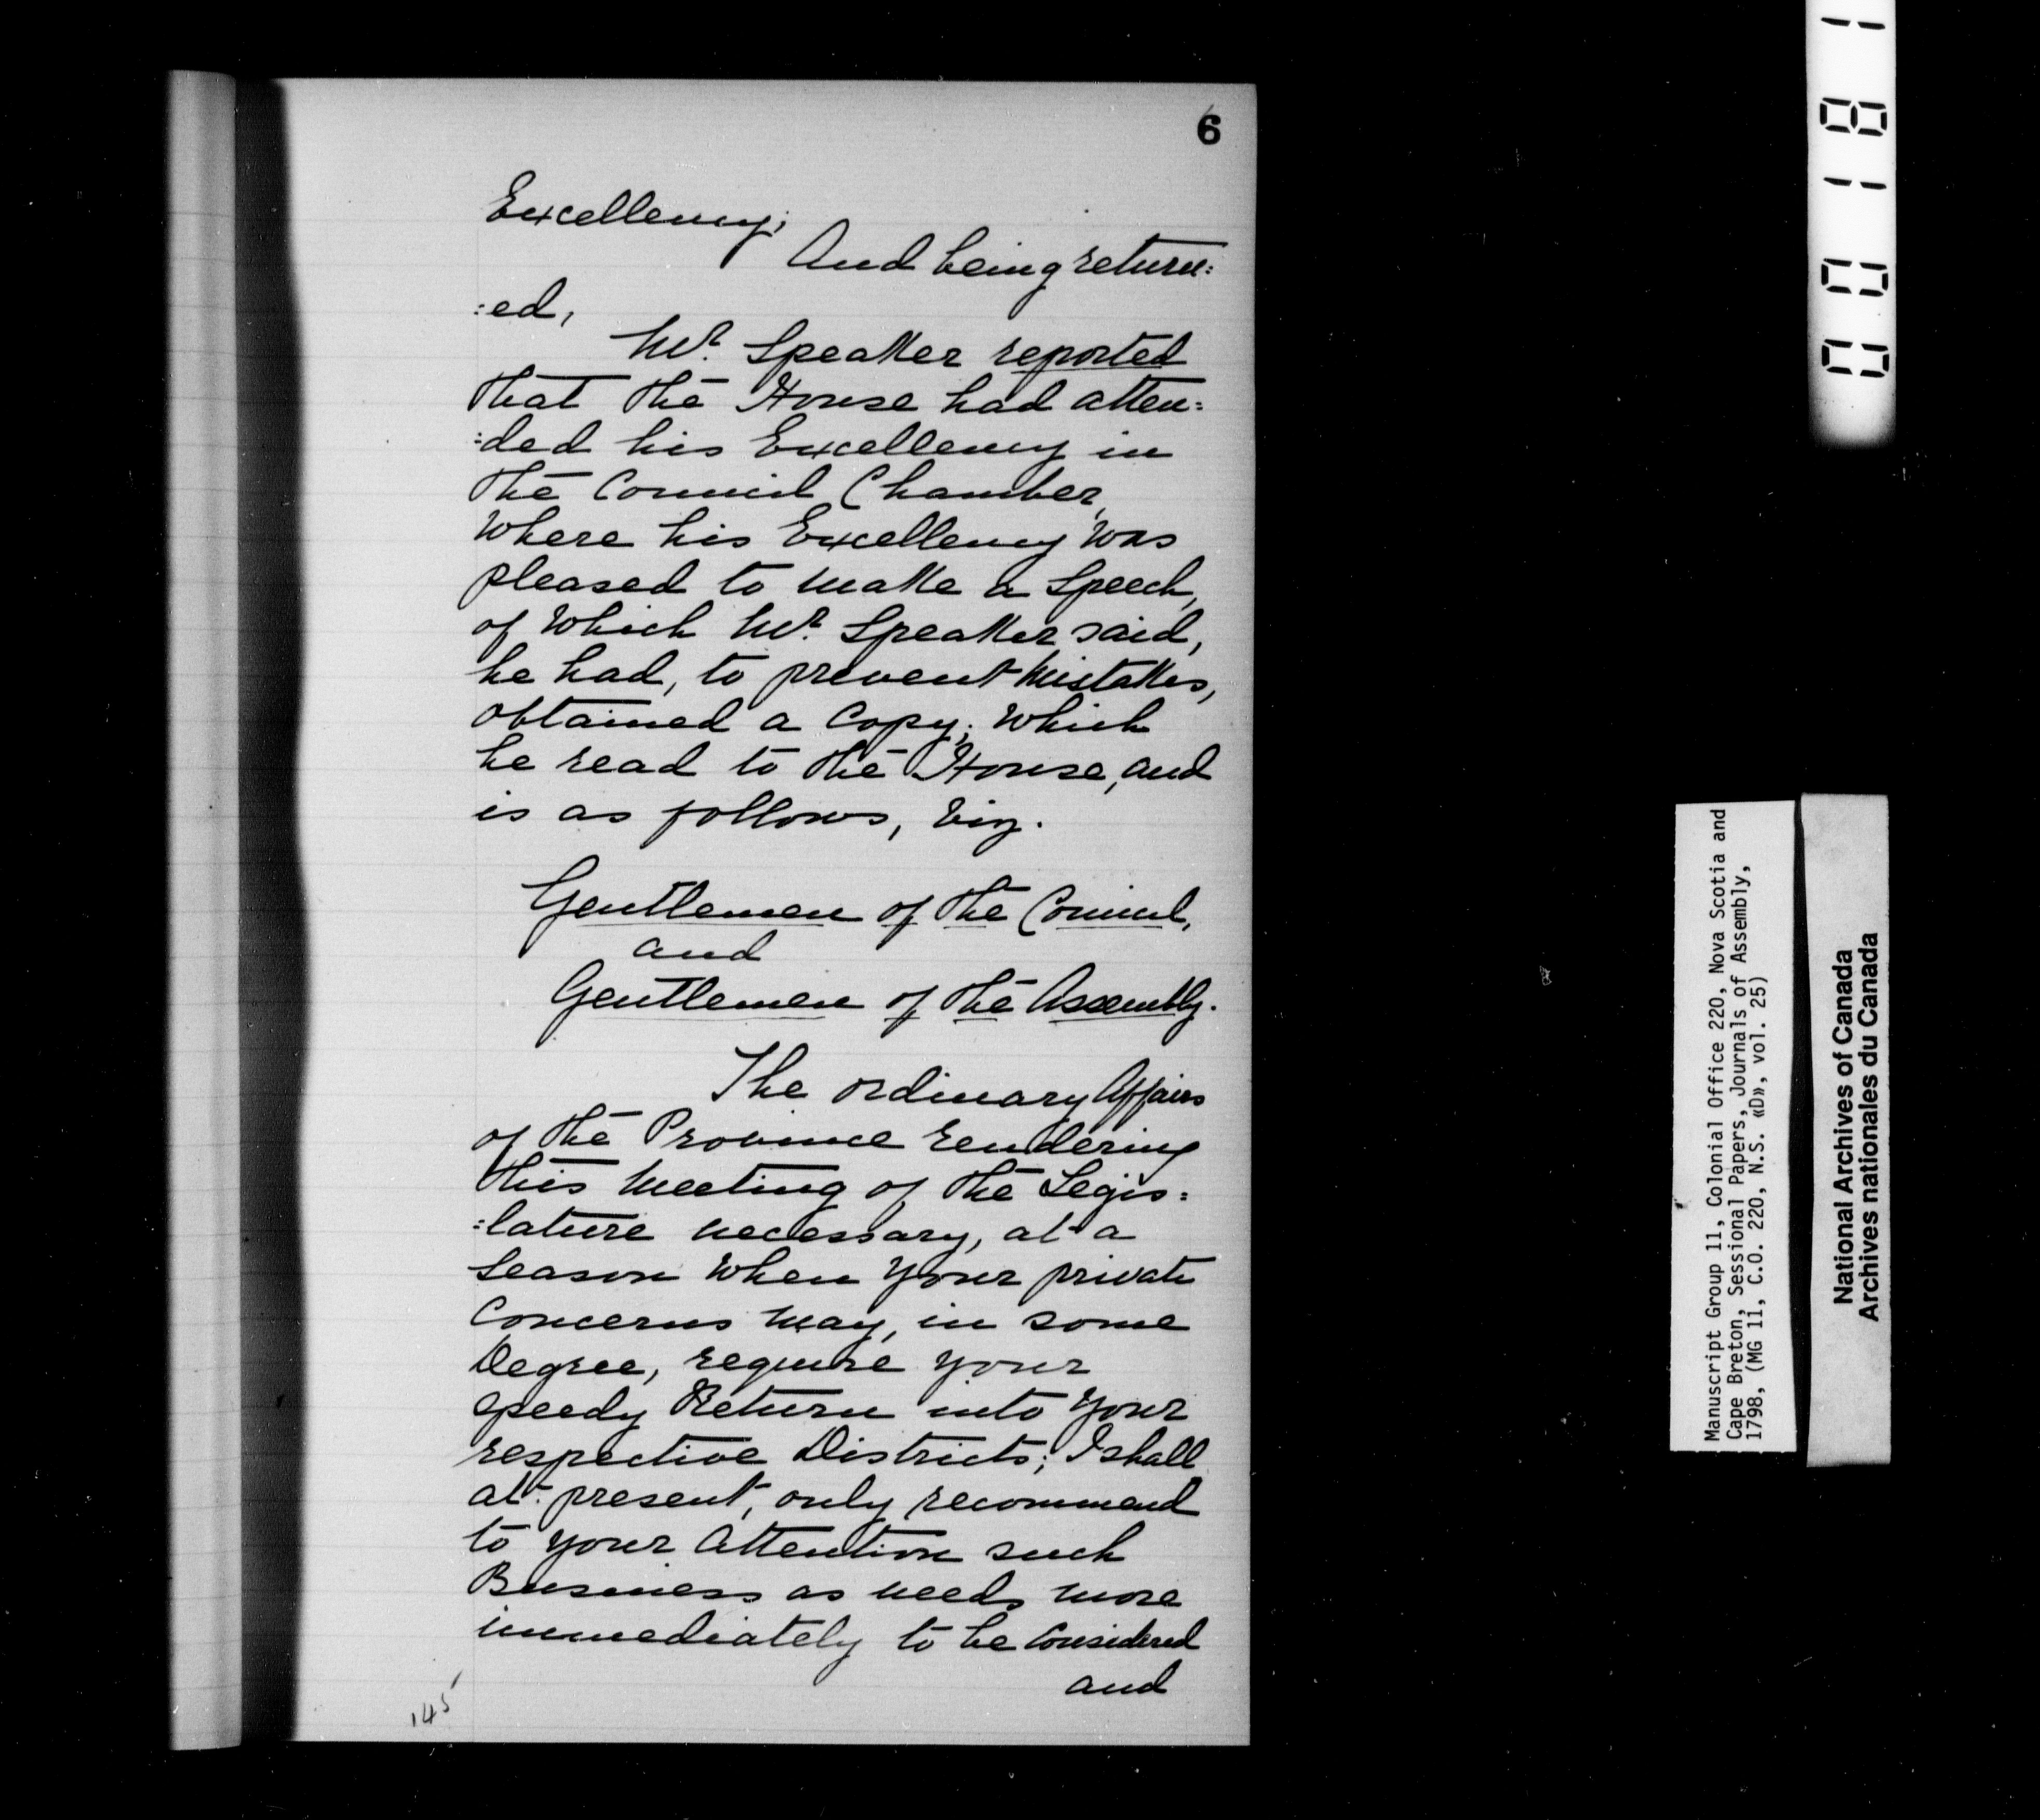 6
Excellency;
And being return=
:ed,
Mr. Speaker reported
that the House had atten=
:ded his Excellency in
the Council Chamber,
Where his Excellency was
pleased to make a Speech,
of Which Mr. Speaker said,
he had, to prevent Mistakes,
obtained a Copy; Which
he read to the House, and
is as follows, Viz.
Gentlemen of the Council,
and
Gentlemen of the Assembly.
The ordinary Affairs
of the Province rendering
this Meeting of the Legis=
:lature necessary, at a
Season When Your private
Concerns may, in some
Degree, require your
speedy Return into Your
respective Districts; I shall
at present, only recommend
to your Attention such
Business as needs more
immediately to be Considered
and
145
00181
Manuscript Group 11, Colonial Office 220, Nova Scotia and
Cape Breton, Sessional Papers, Journals of Assembly,
1798, (MG 11, C.O. 220, N.S. «D», vol. 25)
National Archives of Canada
Archives nationales du Canada